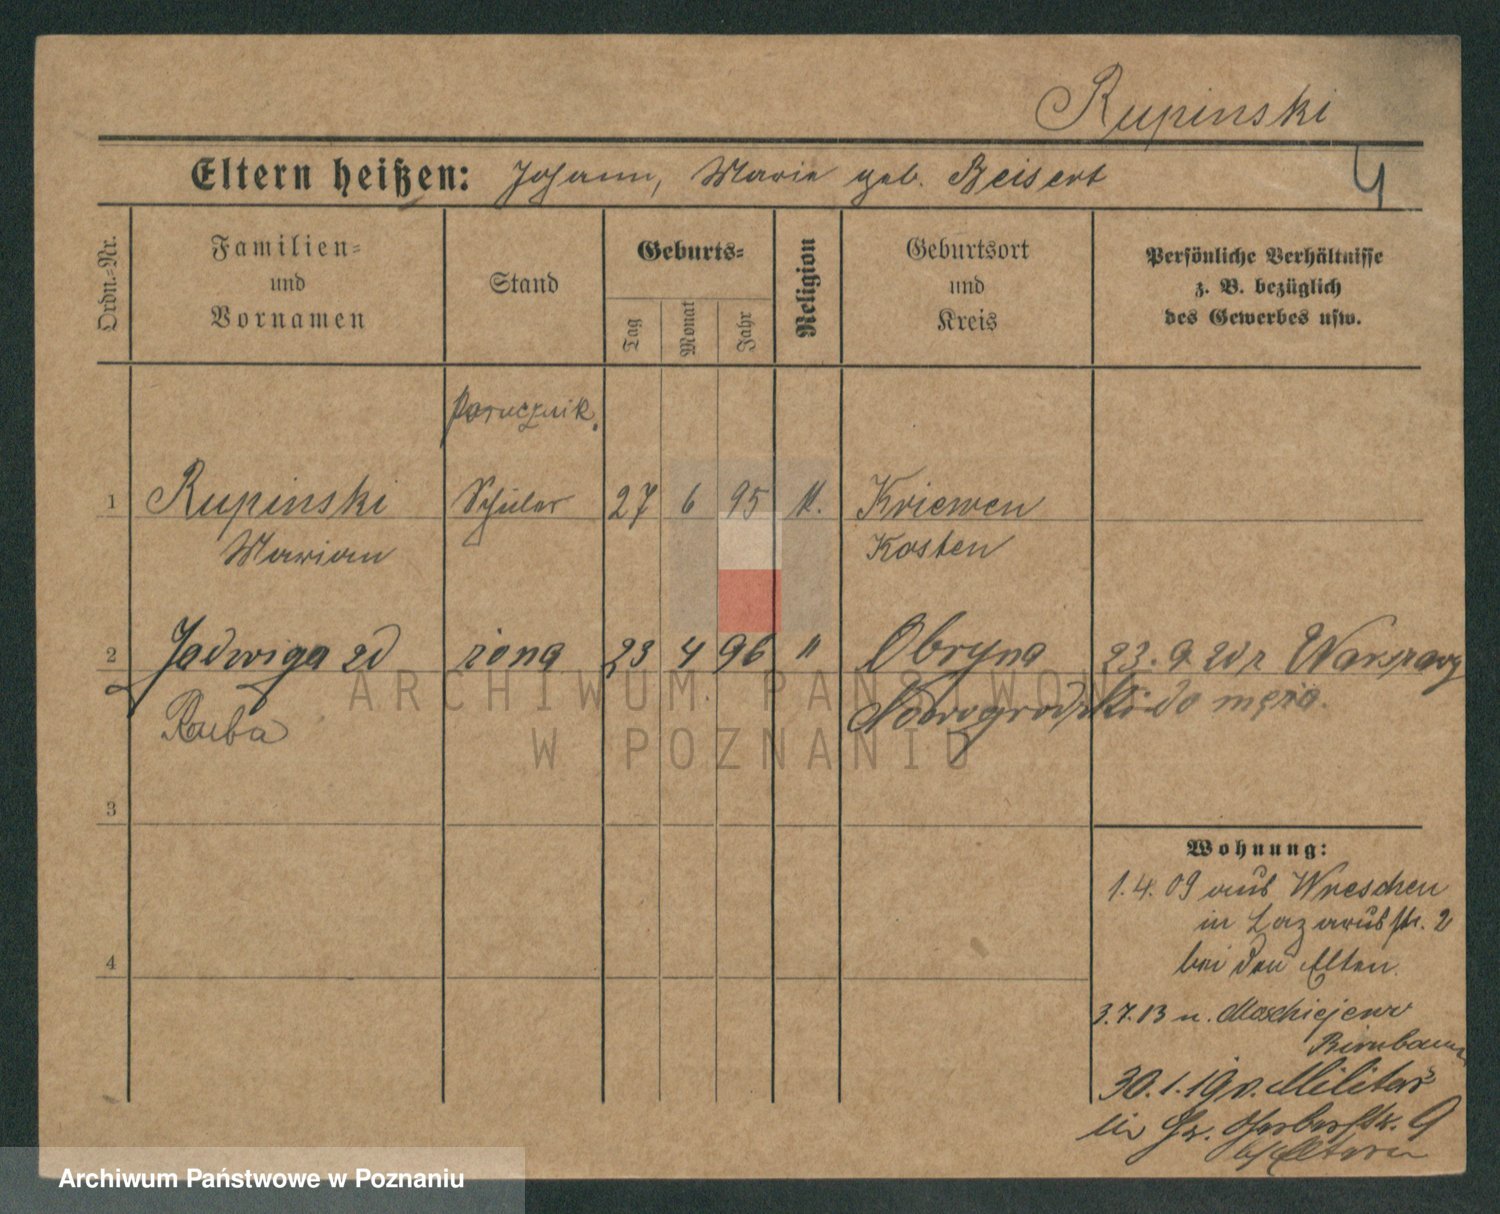 Rupinski
Eltern heißen: Johann, Marie geb. Beisert
4
Ordn.=Nr.
Familien=
und
Vornamen
Stand
Geburts=
Tag
Monat
Jahr
Religion
Geburtsort
und
Kreis
Persönliche Verhältnisse
z. B. bezüglich
des Gewerbes usw.
Porucznik.
1 Rupinski Schüler 27 6 95 k. Kriewen
Marian Kosten
2 Jadwiga zd żona 23 4 96 " Obryna 23.9.20 z Warszawy
Ruba Nowogrodzki do męża.
3
4
Wohnung:
1.4.09 aus Wreschen
in Lazarusstr. 2
bei den Eltern.
3.7.13 n.
Birnbaum
30.1.19 v. Militär
in Gerberstr. 9
Eltern
ARCHIWUM PAŃSTWOWE
W POZNANIU
Archiwum Państwowe w Poznaniu